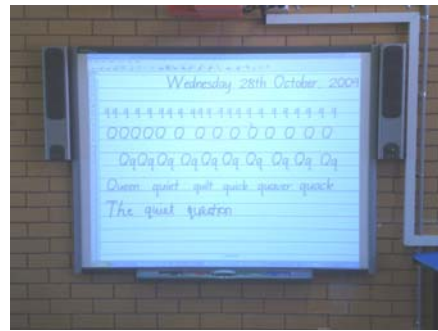 Wednesday 28th October 2009
q q q q q q q q q q q q q q q q q q q q
O O O O O O O O O O O O O
Qq Qq Qq Qq Qq Qq Qq Qq Qq Qq
Queen quiet quilt quick quaver quack
The quiet question